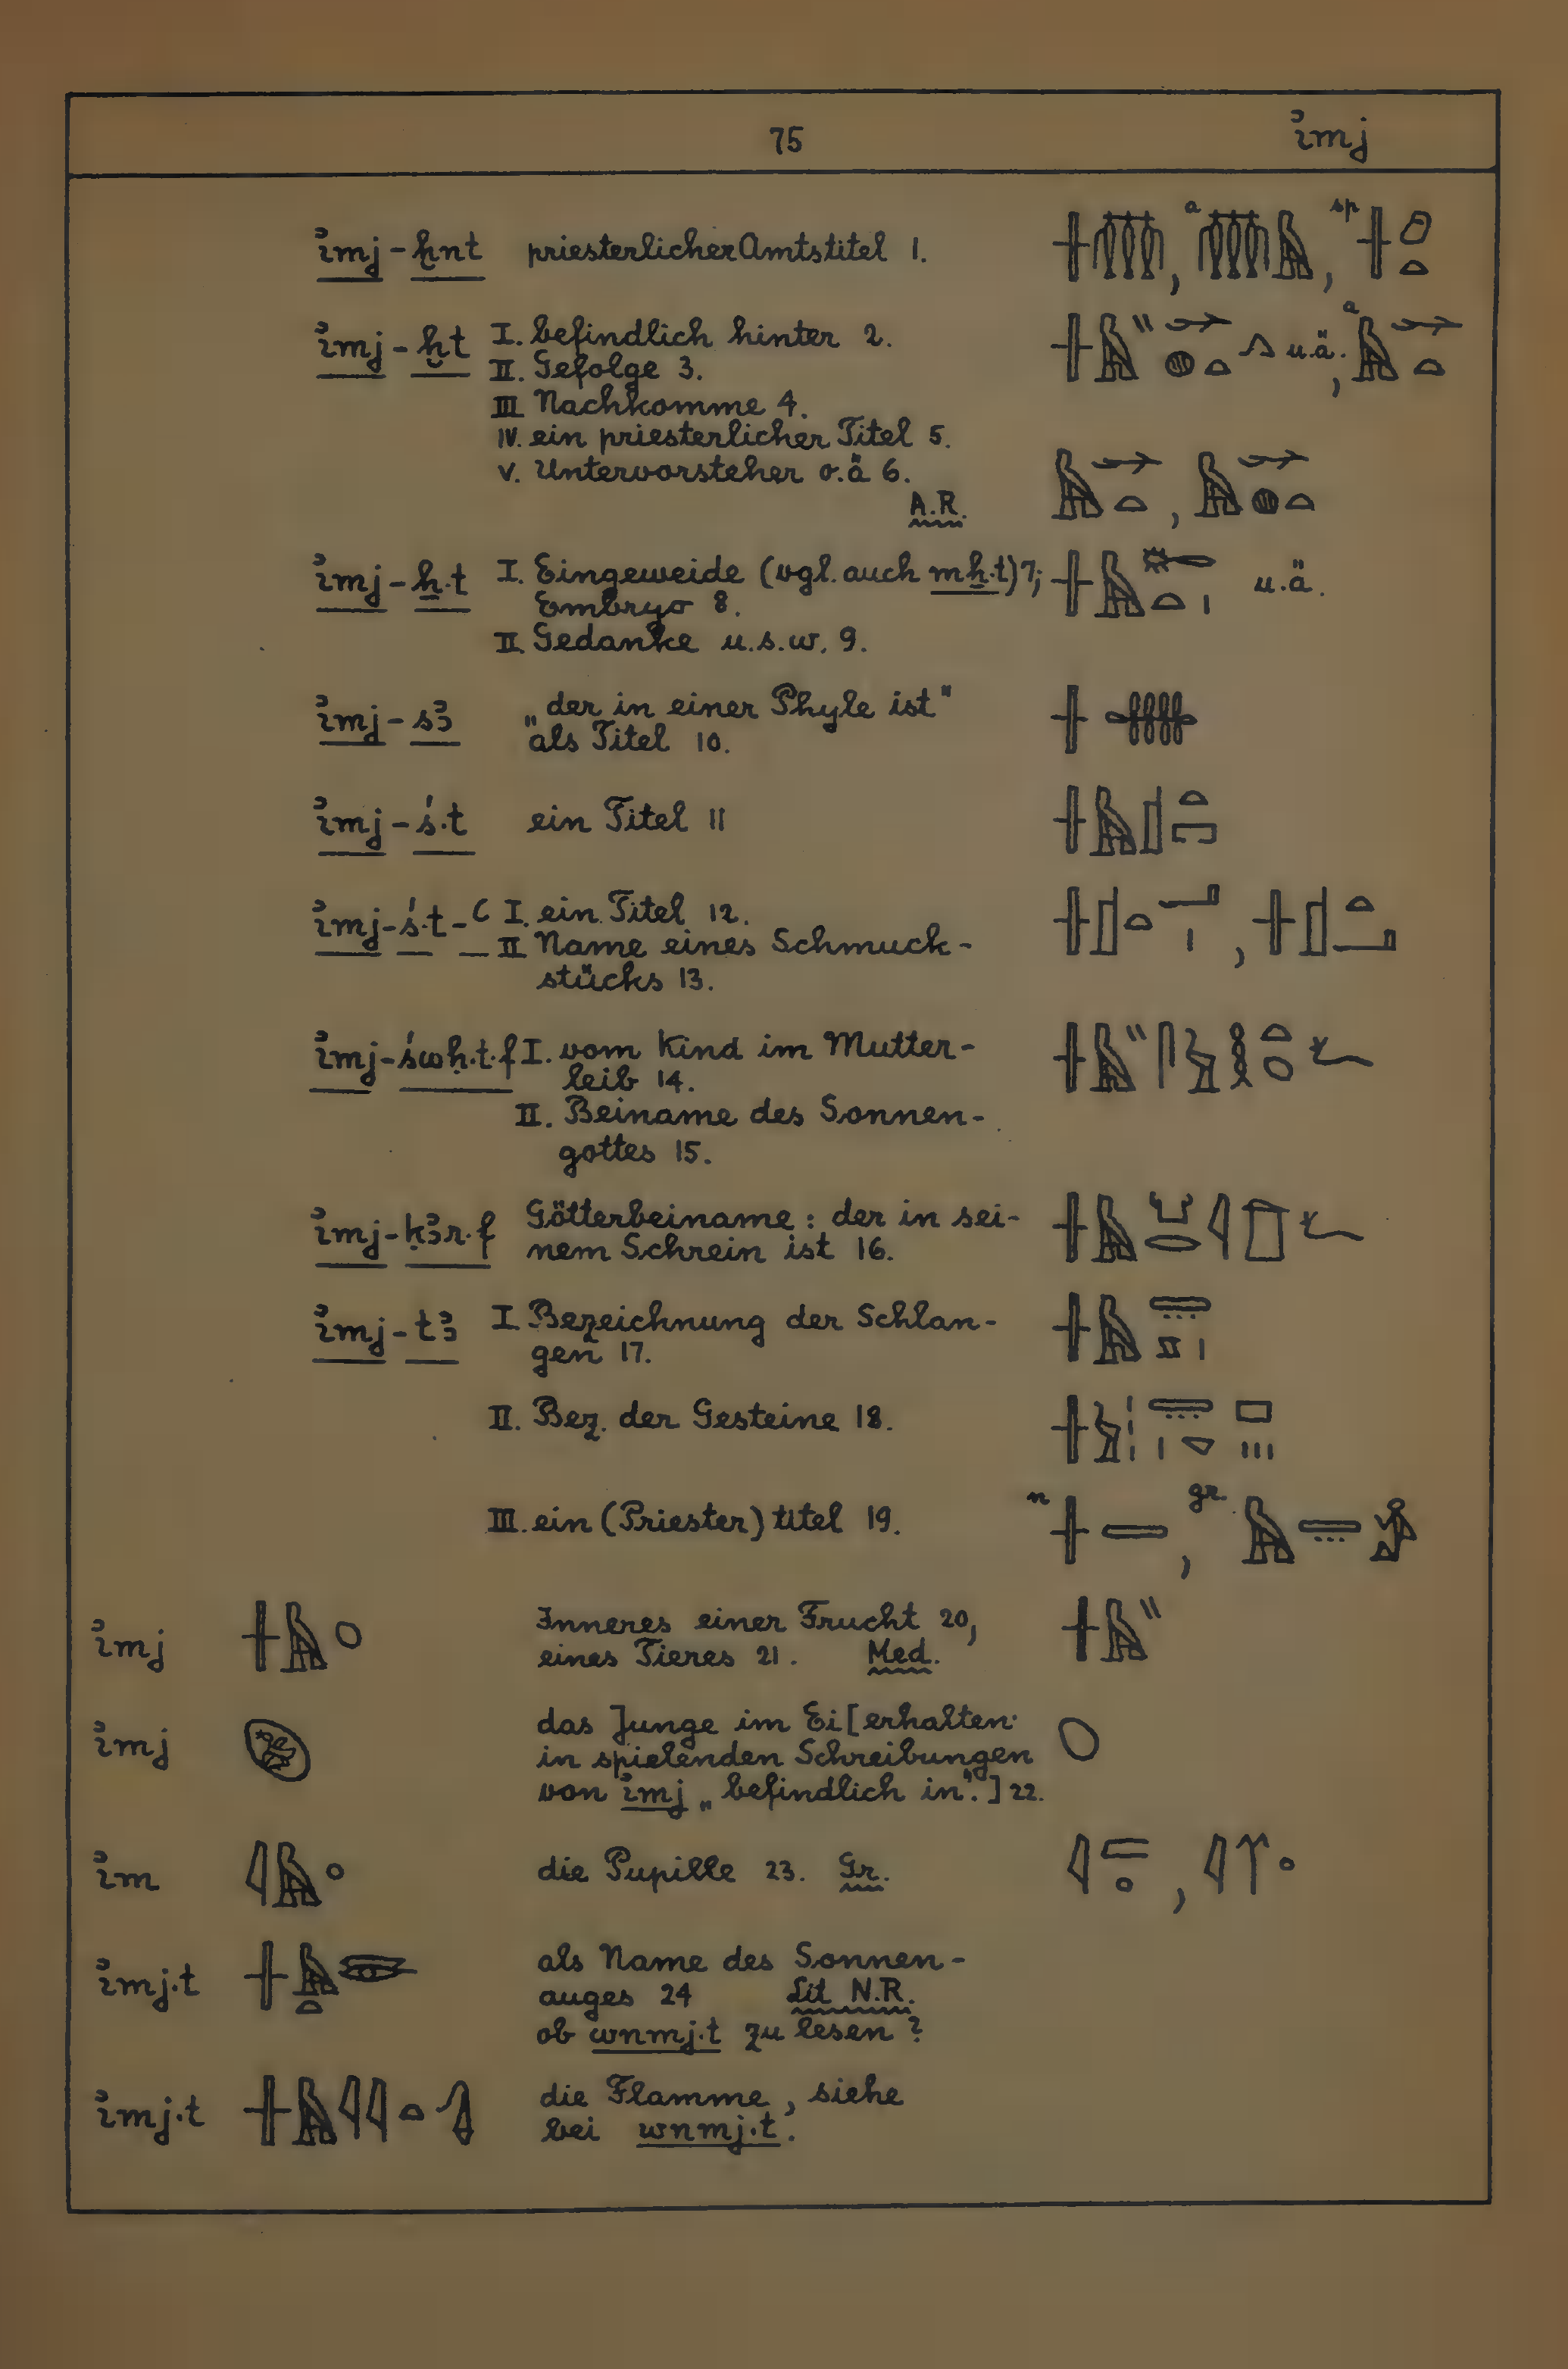 75 ꞽmj
ꞽmj-ḫnt priesterlicher Amtstitel 1. a sp
ꞽmj-ḫt I. befindlich hinter 2. u.ä. a
II. Gefolge 3.
III Nachkomme 4.
IV. ein priesterlicher Titel 5.
V. Untervorsteher o.ä 6.
A.R.
ꞽmj-ẖ.t I. Eingeweide (vgl. auch mẖ.t) 7; u.ä.
Embryo 8.
II. Gedanke u.s.w. 9.
ꞽmj-sꜣ „der in einer Phyle ist"
als Titel 10.
ꞽmj-ś.t ein Titel 11
ꞽmj-ś.t-ꜥ I. ein Titel 12.
II Name eines Schmuck-
stücks 13.
ꞽmj-śwḥ.t.f I. vom Kind im Mutter-
leib 14.
II. Beiname des Sonnen-
gottes 15.
ꞽmj-ḳꜣr.f Götterbeiname: der in sei-
nem Schrein ist 16.
ꞽmj-tꜣ I Bezeichnung der Schlan-
gen 17.
II. Bez. der Gesteine 18.
III. ein (Priester) titel 19. n gr.
ꞽmj Inneres einer Frucht 20,
eines Tieres 21. Med.
ꞽmj das Junge im Ei [erhalten
in spielenden Schreibungen
von ꞽmj „befindlich in".] 22.
ꞽm die Pupille 23. Gr.
ꞽmj.t als Name des Sonnen-
auges 24 Lit N.R.
ob wnmj.t zu lesen?
ꞽmj.t die Flamme, siehe
bei wnmj.t.